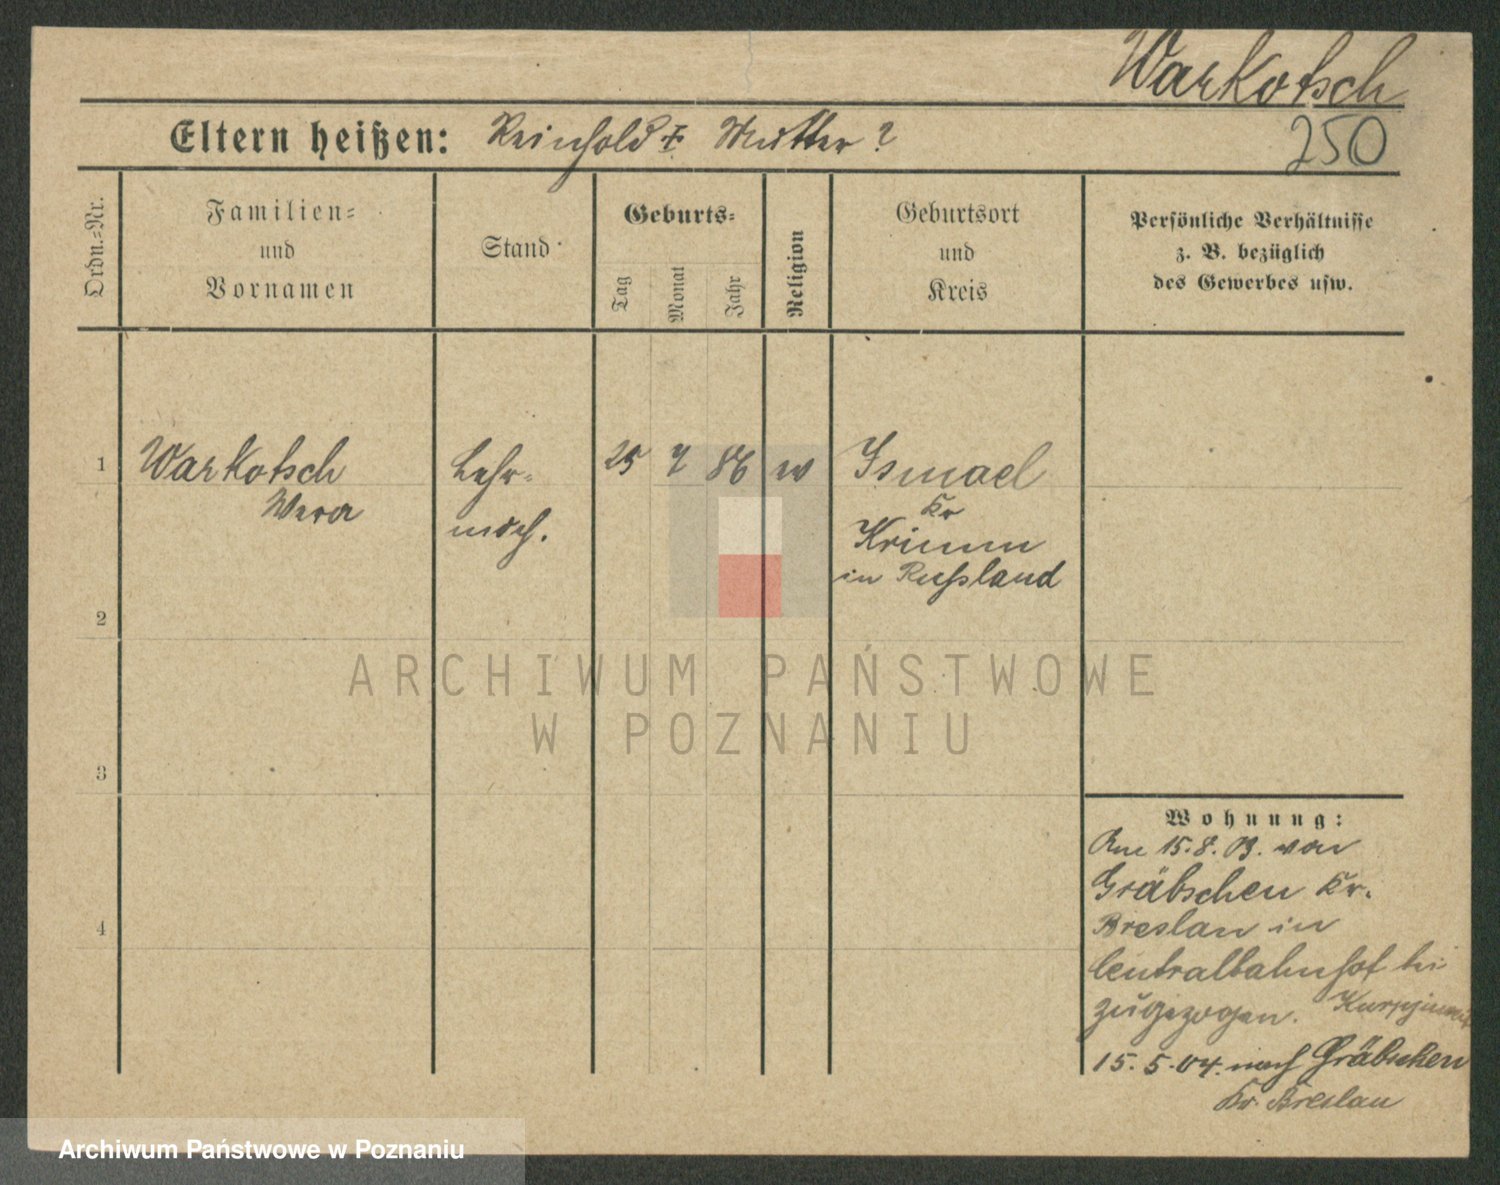 Warkotsch
250
Eltern heißen: Reinhold † Mutter?
Ordn.-Nr.
Familien-
und
Vornamen
Stand
Geburts-
Tag
Monat
Jahr
Religion
Geburtsort
und
Kreis
Persönliche Verhältnisse
z. B. bezüglich
des Gewerbes usw.
1
Warkotsch
Wera
Lehr-
mdch.
25 7 86
Ismael
Kr
Krimm
in Rußland
2
3
4
Wohnung:
Am 15.8.03. von
Gräbschen Kr.
Breslau in
Centralbahnhof bei
zugezogen.
15.5.04. nach Gräbschen
Kr. Breslau
ARCHIWUM PAŃSTWOWE
W POZNANIU
Archiwum Państwowe w Poznaniu